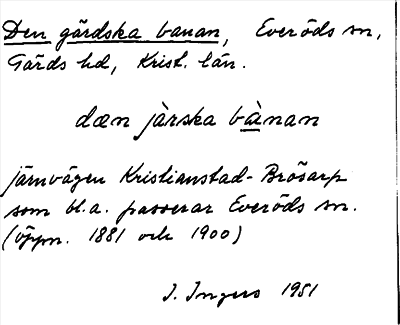 Den gärdska banan, Everöds sn,
Gärds hd, Krist. län.
dæn jàrska bànan
järnvägen Kristianstad-Brösarp
som bl.a. passerar Everöds sn.
(öppn. 1881 och 1900)
I. Ingers 1951